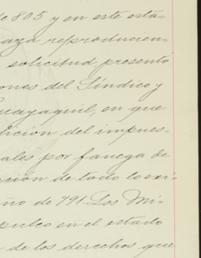 de 805 y en este esta-
aza reproducien-
solicitud presento
ones del Síndico y
uayaquil, en que
ición del impues-
ales por fanega de
ción de todo lo exi-
año de 791. Los Mi-
pulco en el estado
de los derechos que